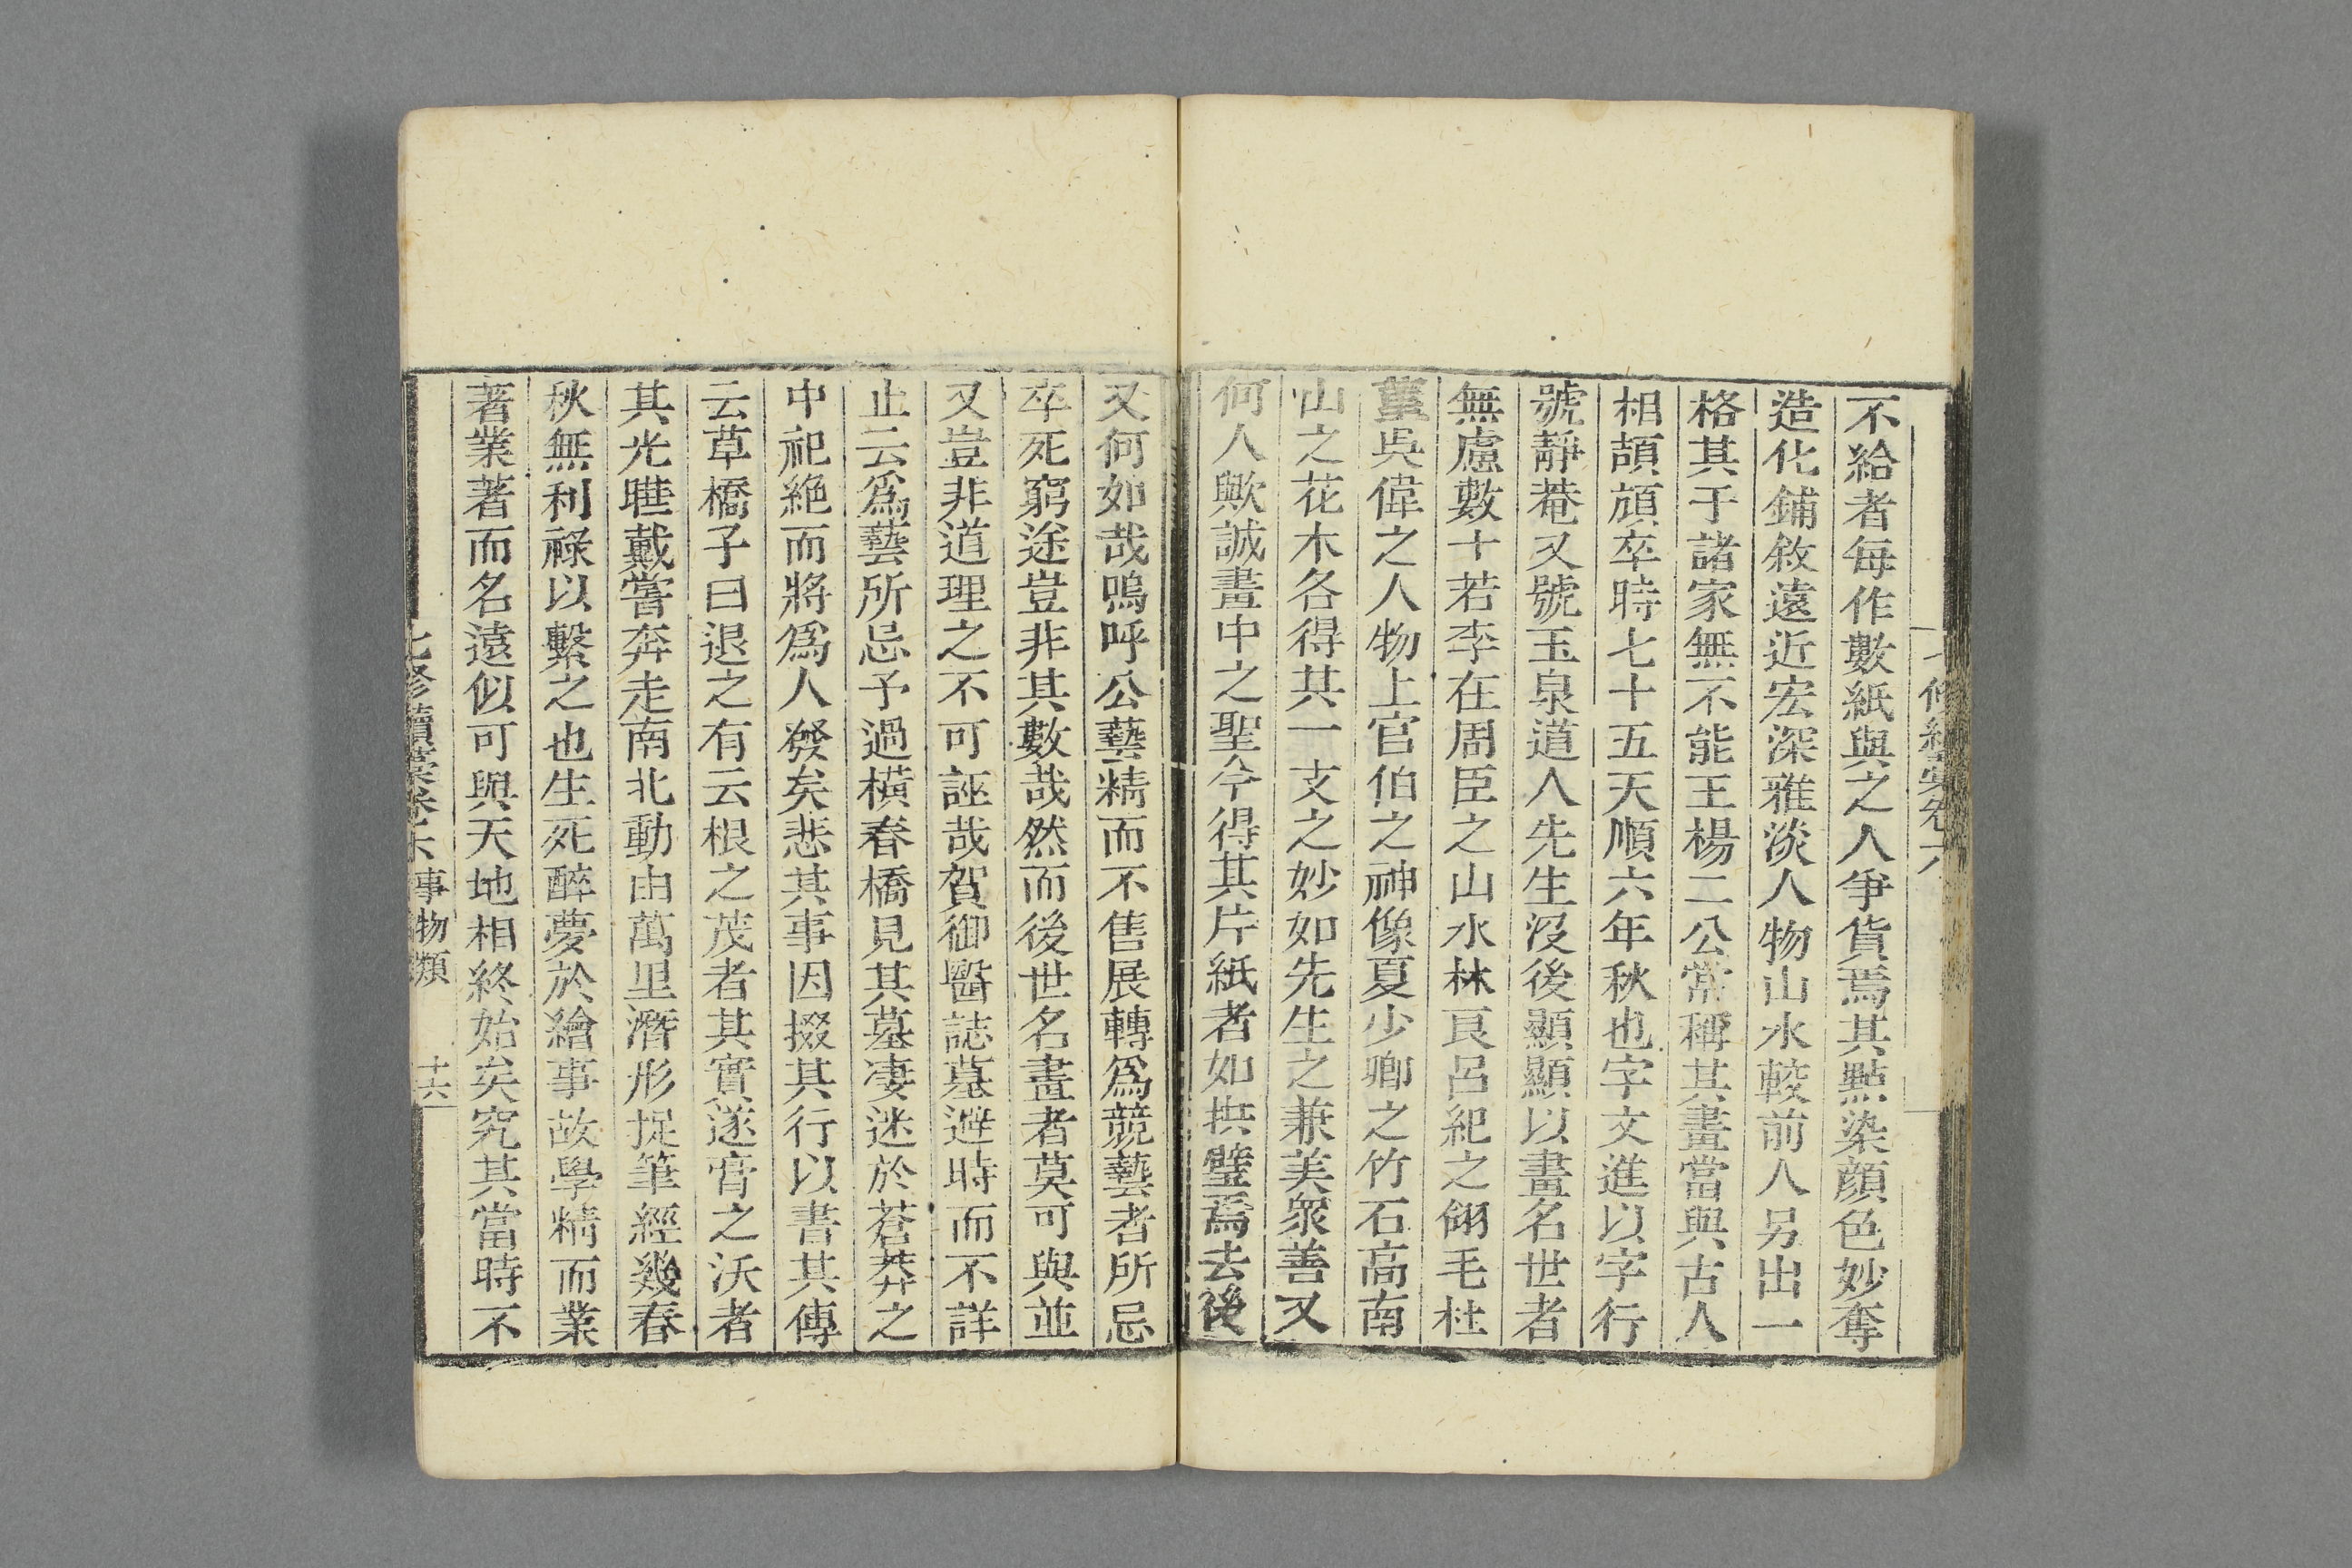 不給者每作數紙與之人爭貨焉其點染顔色妙奪
造化鋪敘遠近宏深雅淡人物山水較前人另出一
格其于諸家無不能王楊二公常稱其畫當與古人
相頡頏卒時七十五天順六年秋也字文進以字行
號靜菴又號玉泉道人先生沒後顯顯以畫名世者
無慮數十若李在周臣之山水林良呂紀之翎毛杜
菫吳偉之人物上官伯之神像夏少卿之竹石高南
山之花木各得其一支之妙如先生之兼美衆善又
何人歟誠畫中之聖今得其片紙者如拱璧焉去後
又何如哉嗚呼公藝精而不售展轉爲競藝者所忌
卒死窮途豈非其數哉然而後世名畫者莫可與並
又豈非道理之不可誣哉賀御醫誌墓避時而不詳
止云爲藝所忌予過橫春橋見其墓凄迷於蒼莽之
中祀絶而將爲人發矣悲其事因掇其行以書其傳
云草橋子曰退之有云根之茂者其實遂膏之沃者
其光曄戴嘗奔走南北動由萬里潛形捉筆經幾春
秋無利祿以繫之也生死醉夢於繪事故學精而業
著業著而名遠似可與天地相終始矣究其當時不
七修續藁卷六 事物類 十六